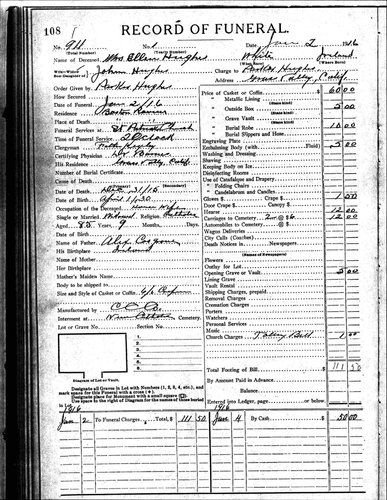 108
RECORD OF FUNERAL.
No. 911 No. 1 Date Jan 2 1916
(Total Number) (Yearly Number)
Name of Deceased Mrs Ellen Hughes White Ireland
(What Race) (Where Born)
Wife—Widow John Hughes Charge to Hughes
Son—Daughter of Grass Valley, Calif.
Address
Order Given by Hughes
How Secured
Date of Funeral Jan 2/16
Residence Boston Ravine
Place of Death
Funeral Services at St Church
Time of Funeral Service O'Clock
Clergyman
Certifying Physician Dr
His Residence Grass Valley Calif.
Number of Burial Certificate
Cause of Death
Date of Death 31/15 (Decedent)
Date of Birth April 1/30
Occupation of the Deceased House Wife
Single or Married Widowed Religion Catholic
Aged 83 Years 9 Months Days
Date of Birth
Name of Father Alex
His Birthplace Ireland
Name of Mother
Her Birthplace
Mother's Maiden Name
Body to be shipped
Size and Style of Casket or Coffin
Manufactured by
Interment at Cemetery.
Lot or Grave No. Section No.
1
2
3
4
5
Diagram of Lot or Vault.
Designate all Graves in Lot with Numbers (1, 2, 3, 4, etc.), and
mark space for this Funeral with a cross (+)
Designate place for Monument with a small square
Use space to right of Diagram for names of those buried
in Lot.
Price of Casket or Coffin $ 60.00
" Metallic Lining
" Outside Box 5 00
" Grave Vault
" Burial Robe 10 00
" Burial Slippers and Hose
Engraving Plate
Embalming Body (with Fluid) 5 00
Washing and Dressing
Shaving
Keeping Body on Ice
Disinfecting Rooms
Use of Catafalque and Drapery
" Folding Chairs
" Candelabrum and Candles
Gloves $ Crape $ 1 50
Door Crape $ Canopy $
Hearse 10 00
Carriages to Cemetery 2 @ $6 12 00
Automobiles to Cemetery @ $
Wagon Deliveries
City Calls (Coaches)
Death Notices in Newspapers
Newspapers
Flowers
Outlay for Lot
Opening Grave or Vault 5 00
Lining Grave
Vault Rental
Shipping Charges, prepaid
Removal Charges
Cremation Charges
Porters
Watchers
Personal Services
Music
Church Charges Tolling Bell
Total Footing of Bill 111 50
By Amount Paid in Advance
Balance
Entered into Ledger, page or below.
1916 1916
Jan 2 To Funeral Charges, Total, $ 111 50 Jan 4 By Cash $ 50 00